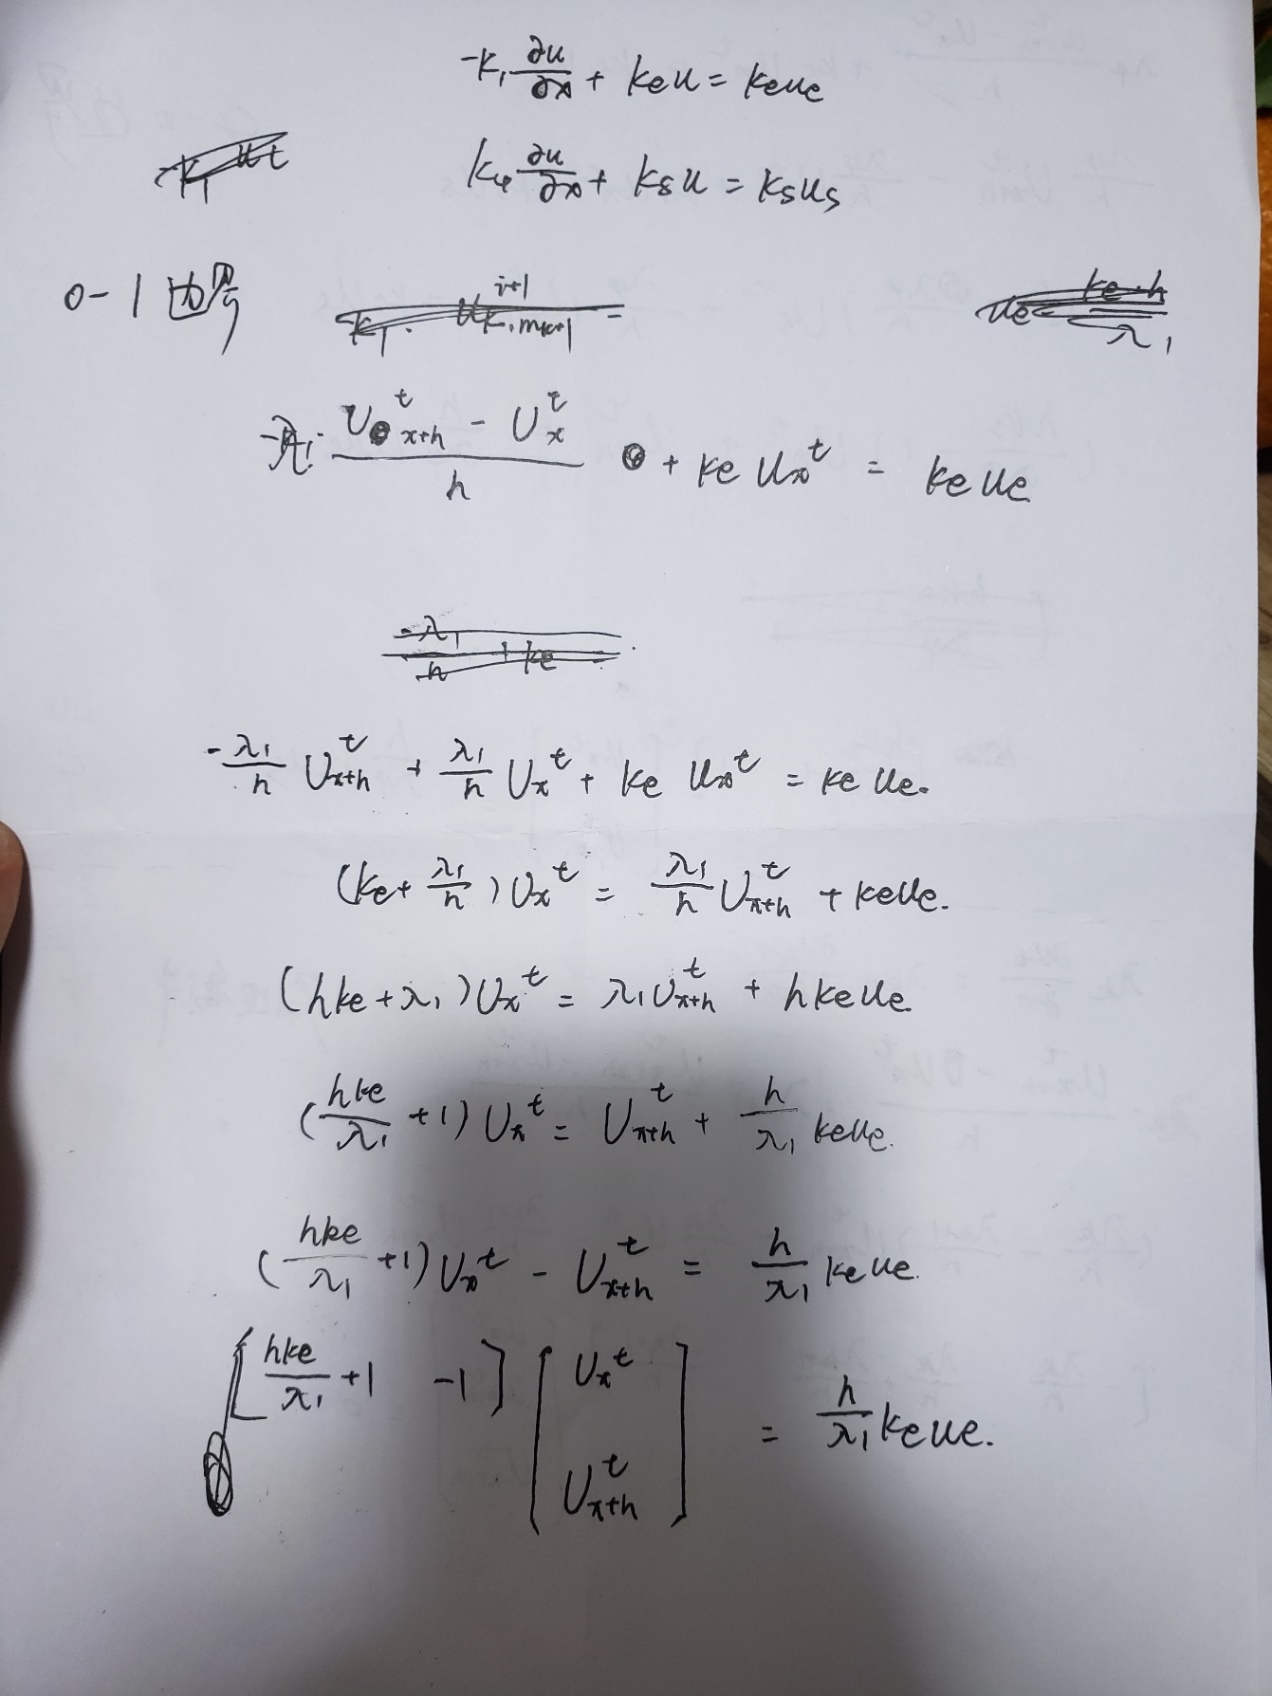 -k₁ ∂u/∂x + keu = keue
k₄ ∂u/∂x + ksu = ksus
0-1 边界
-λ₁ · (U_{x+h}^t - U_x^t)/h + ke u_x^t = ke ue
-λ₁/h U_{x+h}^t + λ₁/h U_x^t + ke u_x^t = ke ue.
(ke + λ₁/h) U_x^t = λ₁/h U_{x+h}^t + keue.
(hke + λ₁) U_x^t = λ₁ U_{x+h}^t + hkeue
(hke/λ₁ + 1) U_x^t = U_{x+h}^t + h/λ₁ keue.
(hke/λ₁ + 1) U_x^t - U_{x+h}^t = h/λ₁ keue.
[hke/λ₁ + 1  -1] [U_x^t  U_{x+h}^t] = h/λ₁ keue.